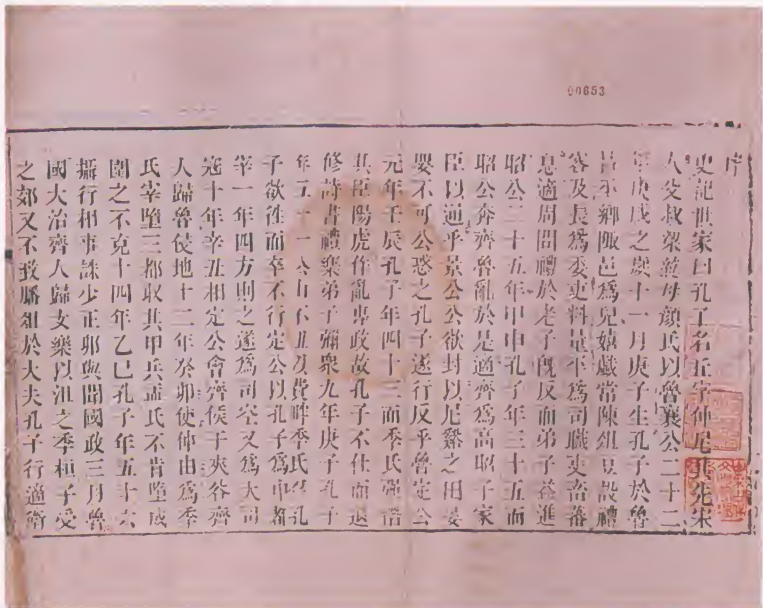 00653
序
史記世家曰孔子名丘字仲尼其先宋
人父叔梁紇母顏氏以魯襄公二十二
年庚戌之歲十一月庚子生孔子於魯
昌平鄉陬邑爲兒嬉戲常陳俎豆設禮
容及長爲委吏料量平爲司職吏畜蕃
息適周問禮於老子旣反而弟子益進
昭公二十五年甲申孔子年三十五而
昭公奔齊魯亂於是適齊爲高昭子家
臣以通乎景公公欲封以尼谿之田晏
嬰不可公惑之孔子遂行反乎魯定公
元年壬辰孔子年四十三而季氏强僭
其臣陽虎作亂專政故孔子不仕而退
修詩書禮樂弟子彌衆九年庚子孔子
年五十一公山不狃以費畔季氏召孔
子欲往而卒不行定公以孔子爲中都
宰一年四方則之遂爲司空又爲大司
寇十年辛丑相定公會齊侯于夾谷齊
人歸魯侵地十二年癸卯使仲由爲季
氏宰墮三都收其甲兵孟氏不肯墮成
圍之不克十四年乙巳孔子年五十六
攝行相事誅少正卯與聞國政三月魯
國大治齊人歸女樂以沮之季桓子受
之郊又不致膰俎於大夫孔子行適衛